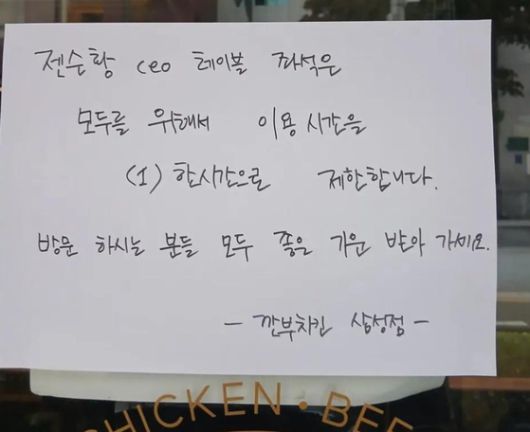 젠슨황 ceo 테이블 좌석은
모두를 위해서 이용시간을
(1) 한시간으로 제한합니다.
방문 하시는 분들 모두 좋은 기운 받아 가세요.
- 깐부치킨 삼성점 -
CHICKEN • BEE